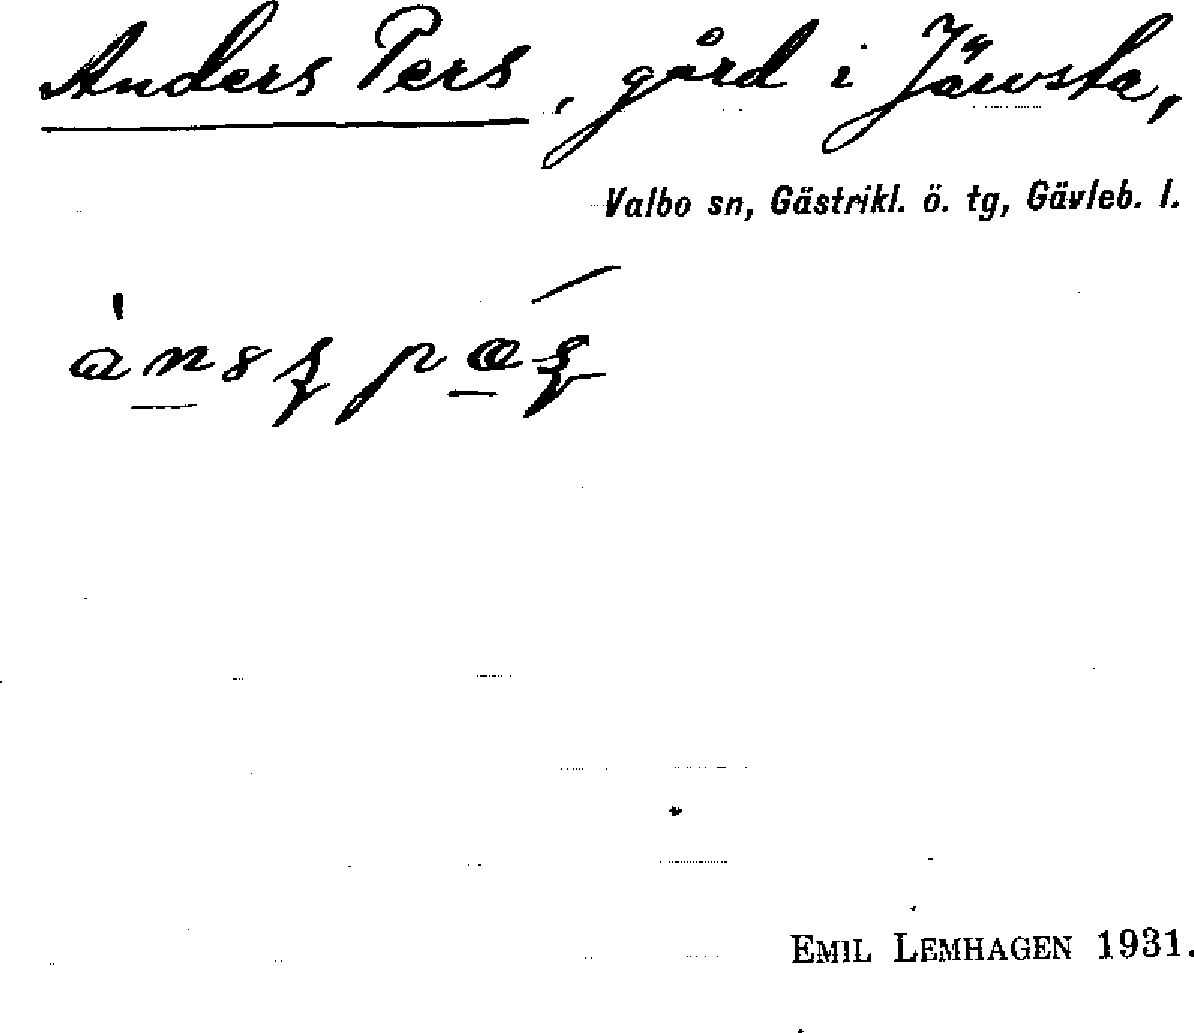 Anders Pers, gård i Järvsta,
Valbo sn, Gästrikl. ö. tg, Gävleb. l.
EMIL LEMHAGEN 1931.